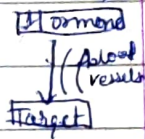 Hormone
blood
vessels
Target